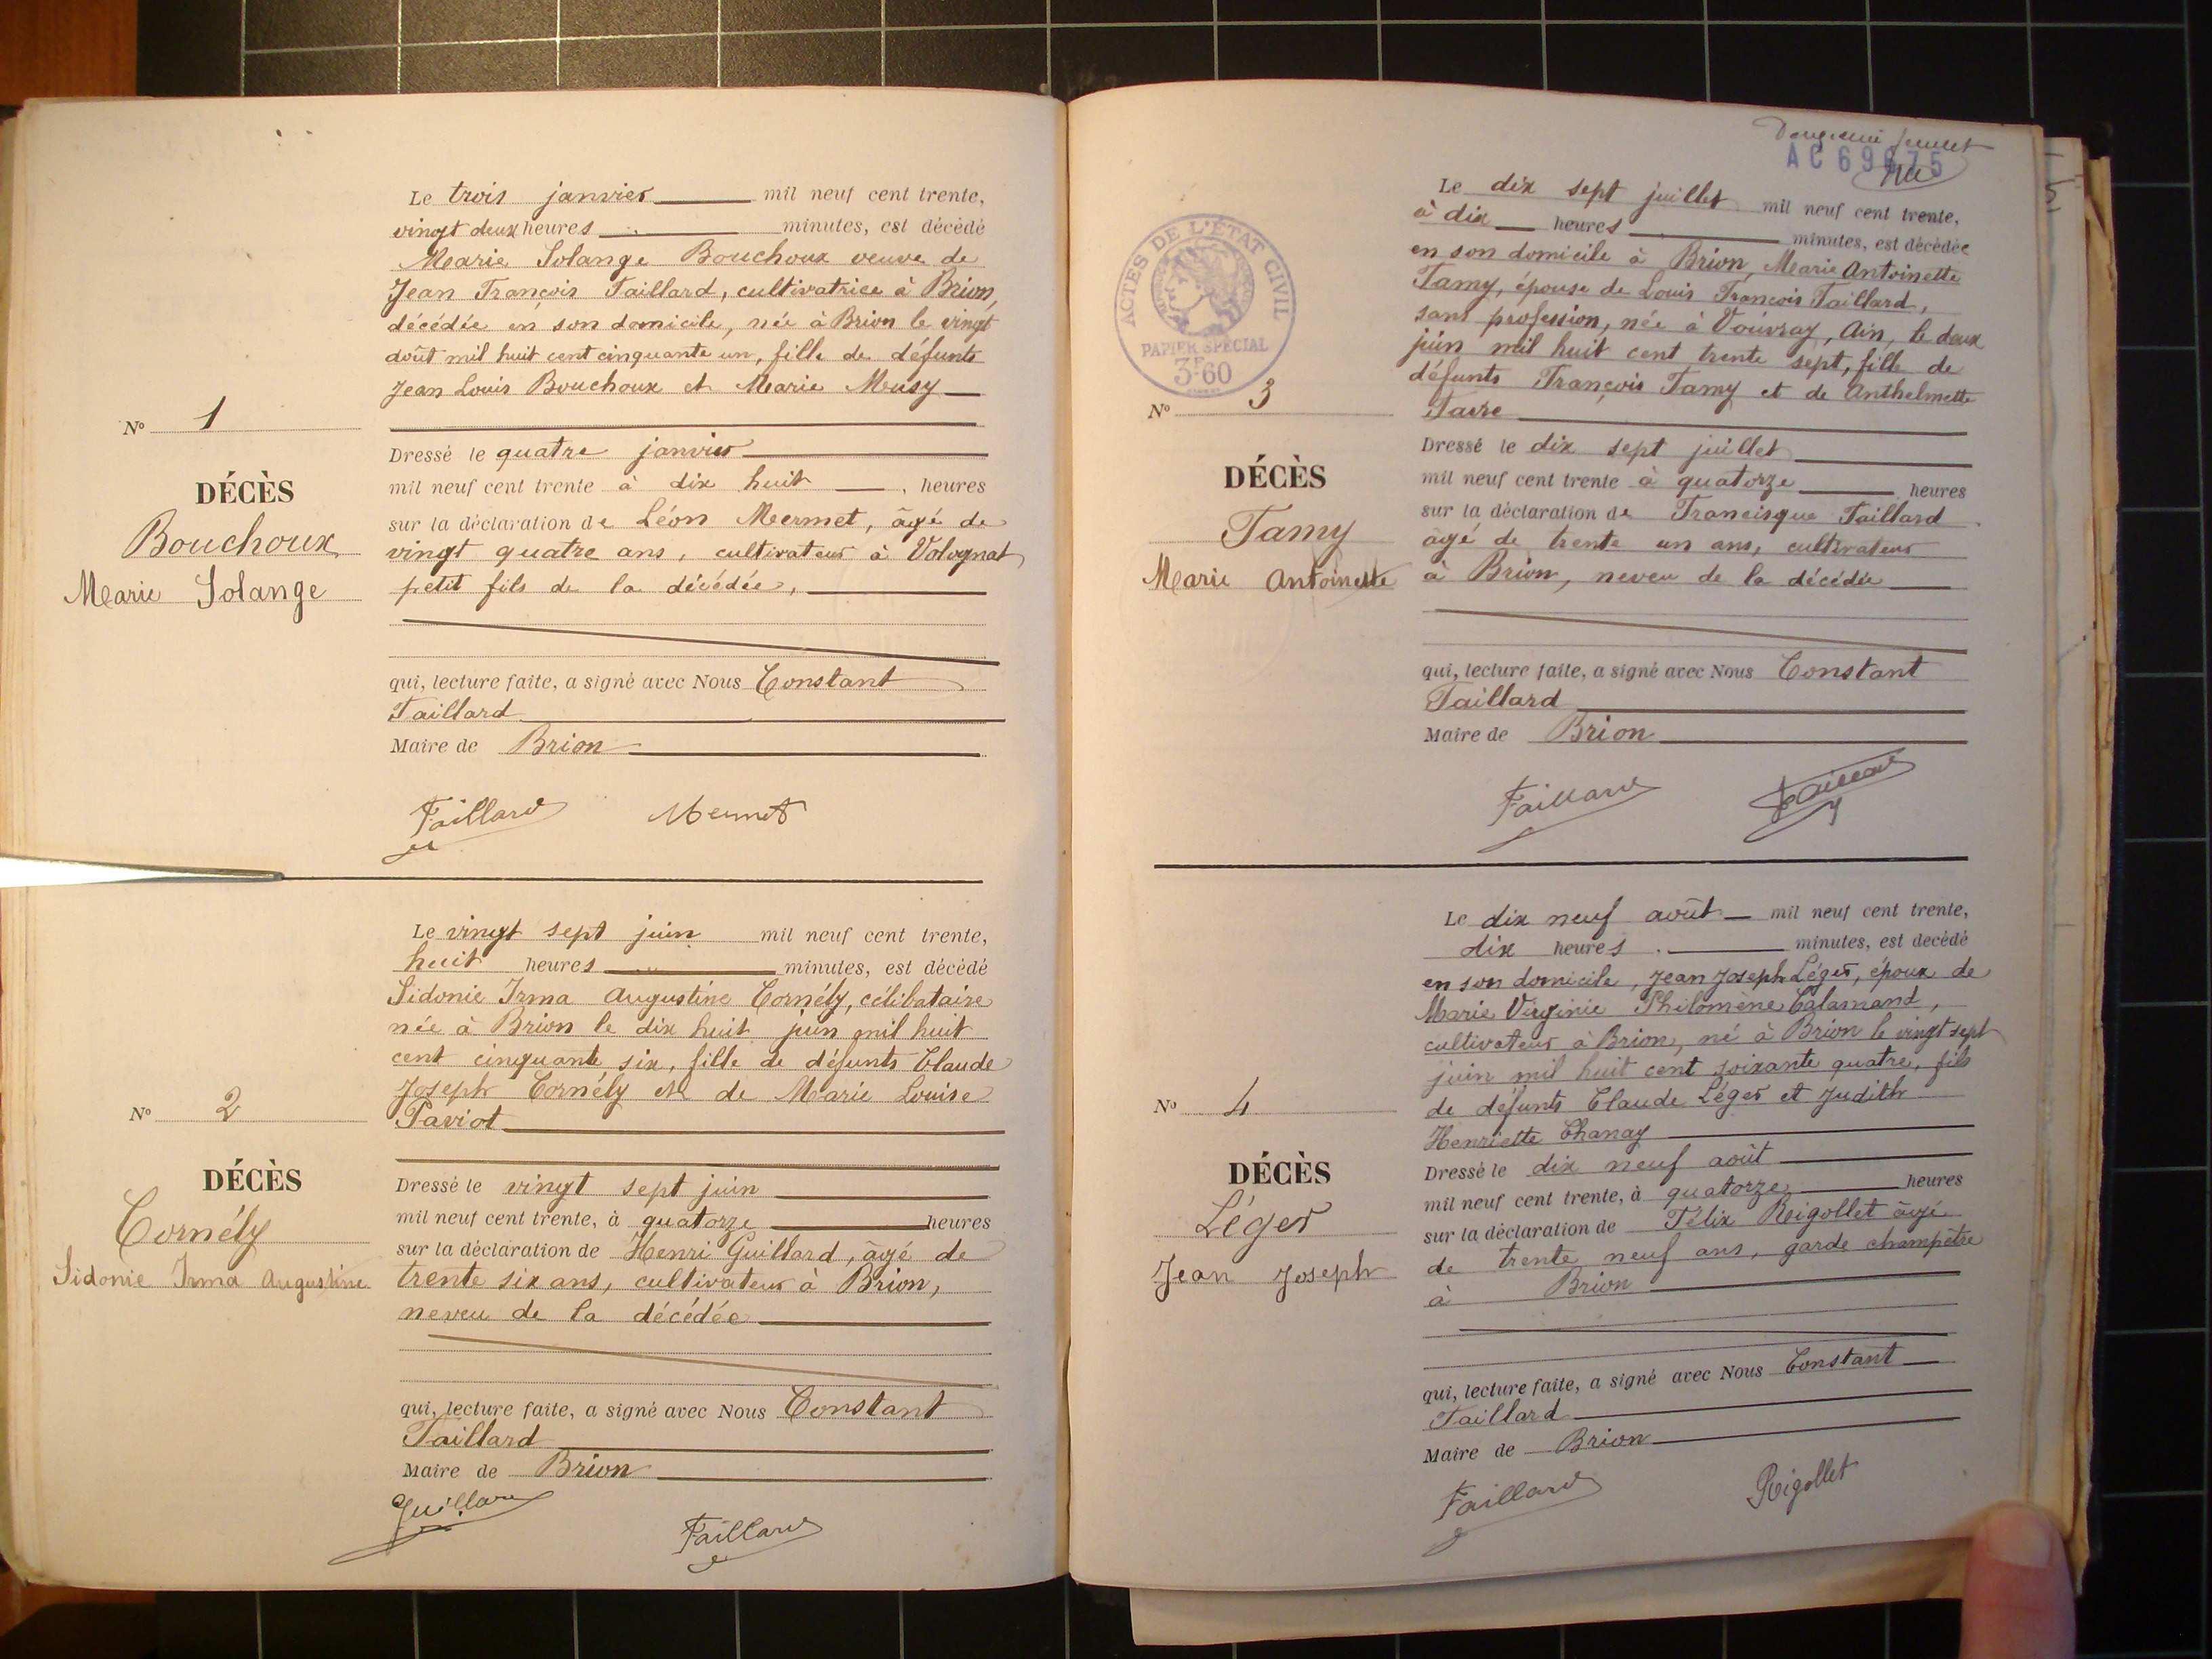 Le trois janvier mil neuf cent trente,
vingt deux heures minutes, est décédé
Marie Solange Bouchoux veuve de
Jean François Taillard, cultivatrice à Brion,
décédée en son domicile, née à Brion le vingt
août mil huit cent cinquante un, fille de défunts
Jean Louis Bouchoux et Marie Meusy
Nº 1
DÉCÈS
Bouchoux
Marie Solange
Dressé le quatre janvier
mil neuf cent trente à dix huit heures
sur la déclaration de Léon Mermet, âgé de
vingt quatre ans, cultivateur à Volognat
petit fils de la décédée,
qui, lecture faite, a signé avec Nous Constant
Taillard
Maire de Brion
Taillard Mermet
Le vingt sept juin mil neuf cent trente,
huit heures minutes, est décédé
Sidonie Irma Augustine Cornély, célibataire
née à Brion le dix huit juin mil huit
cent cinquante six, fille de défunts Claude
Joseph Cornély et de Marie Louise
Paviot
Nº 2
DÉCÈS
Cornély
Sidonie Irma Augustine
Dressé le vingt sept juin
mil neuf cent trente, à quatorze heures
sur la déclaration de Henri Guillard, âgé de
trente six ans, cultivateur à Brion,
neveu de la décédée
qui, lecture faite, a signé avec Nous Constant
Taillard
Maire de Brion
Guillard
Taillard
feuillet
ACTES DE L'ÉTAT CIVIL
PAPIER SPÉCIAL
3F60
Le dix sept juillet mil neuf cent trente,
à dix heures minutes, est décédée
en son domicile à Brion, Marie Antoinette
Tamy, épouse de Louis François Taillard,
sans profession, née à Vouvray, Ain, le deux
juin mil huit cent trente sept, fille de
défunts François Tamy et de Anthelmette
Nº 3
DÉCÈS
Tamy
Marie Antoinette
Dressé le dix sept juillet
mil neuf cent trente à quatorze heures
sur la déclaration de Francisque Taillard
âgé de trente un ans, cultivateur
à Brion, neveu de la décédée
qui, lecture faite, a signé avec Nous Constant
Taillard
Maire de Brion
Taillard Taillard
Le dix neuf août mil neuf cent trente,
dix heures minutes, est decédé
en son domicile, Jean Joseph Léger, époux de
Marie Virginie Philomène Calamand,
cultivateur à Brion, né à Brion le vingt sept
juin mil huit cent soixante quatre, fils
de défunts Claude Léger et Judith
Henriette Chanay
Nº 4
DÉCÈS
Léger
Jean Joseph
Dressé le dix neuf août
mil neuf cent trente, à quatorze heures
sur la déclaration de Félix Reigollet âgé
de trente neuf ans, garde champêtre
à Brion
qui, lecture faite, a signé avec Nous Constant
Taillard
Maire de Brion
Taillard Rigollet